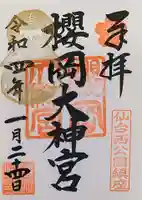 奉拝
櫻岡大神宮
令和四年
一月二十四日
仙台西公園鎮座